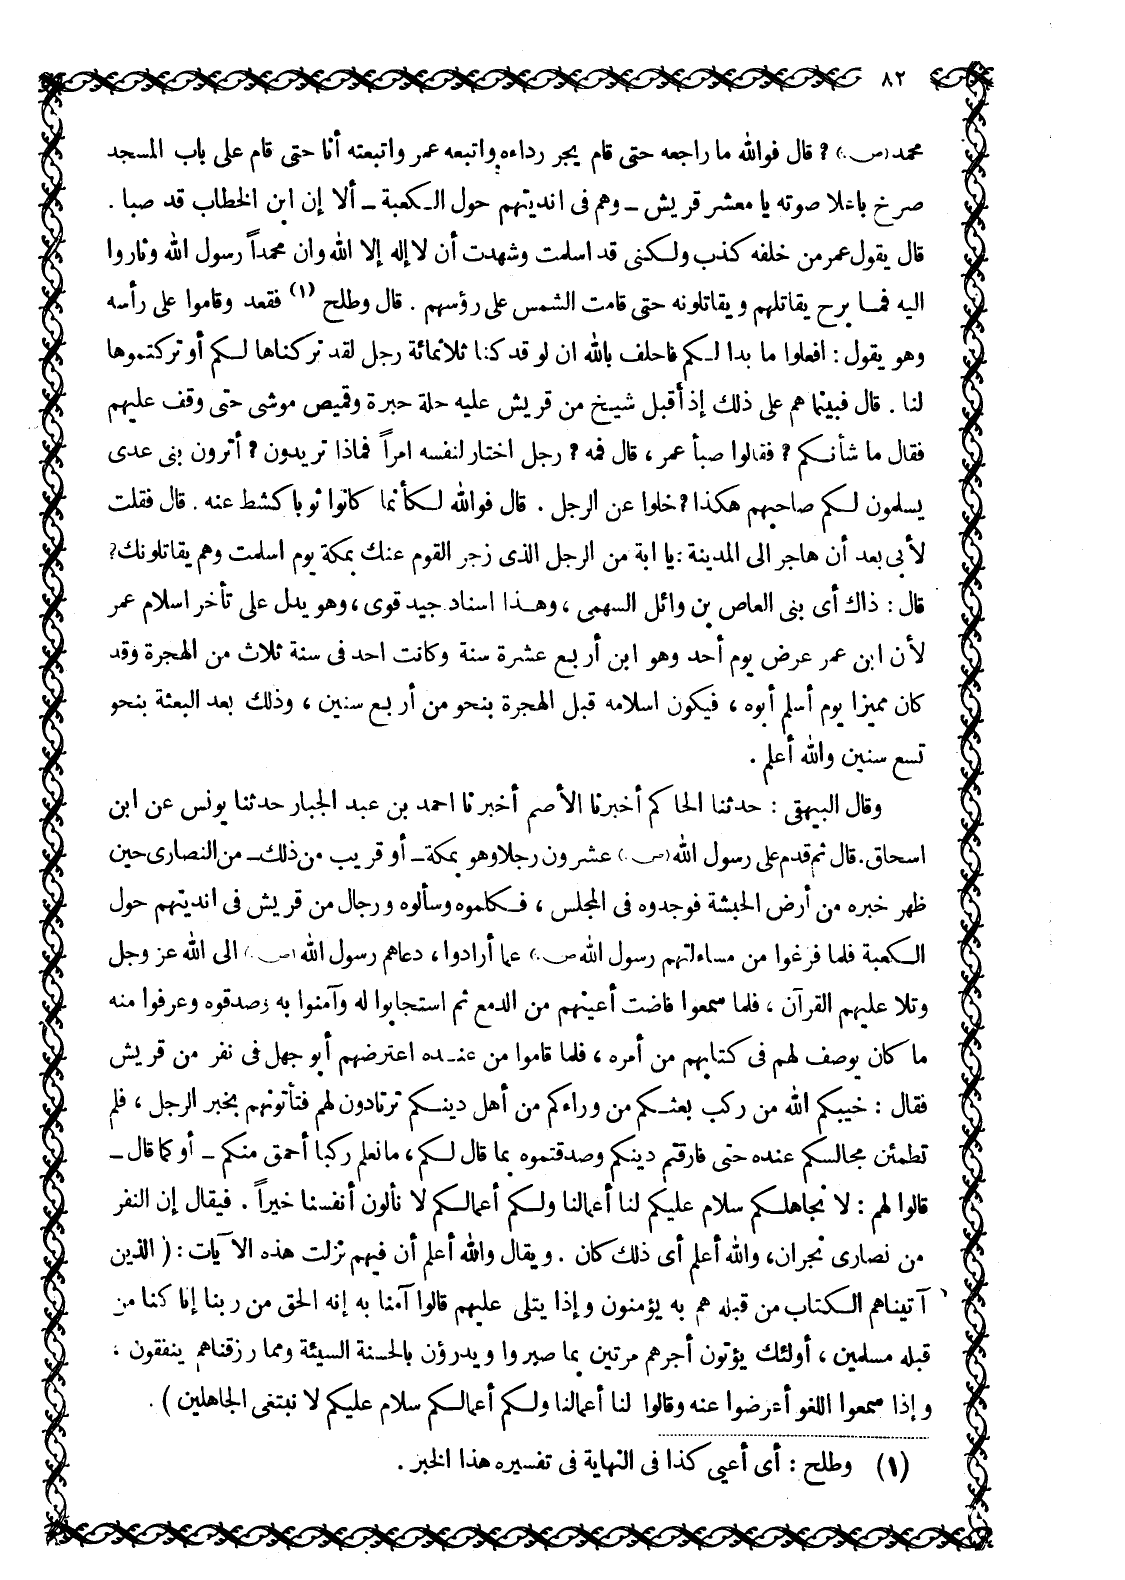 ٨٢
محمد (ص.) ? قال فوالله ما راجعه حتى قام يجر رداءه واتبعه عمر واتبعته أنا حتى قام على باب المسجد
صرخ باعلا صوته يا معشر قريش ــ وهم فى انديتهم حول الكعبة ــ ألا إن ابن الخطاب قد صبا .
قال يقول عمر من خلفه كذب ولكنى قد اسلمت وشهدت أن لا إله إلا الله وان محمداً رسول الله وثاروا
اليه فما برح يقاتلهم ويقاتلونه حتى قامت الشمس على رؤسهم . قال وطلح (١) فقعد وقاموا على رأسه
وهو يقول : افعلوا ما بدا لكم فاحلف بالله ان لو قد كنا ثلاثمائة رجل لقد تركناها لكم أو تركتموها
لنا . قال فبينما هم على ذلك إذ أقبل شيخ من قريش عليه حلة حبرة وقميص موشى حتى وقف عليهم
فقال ما شأنكم ? فقالوا صبأ عمر ، قال فمه ? رجل اختار لنفسه امراً فماذا تريدون ? أترون بنى عدى
يسلمون لكم صاحبهم هكذا ? خلوا عن الرجل . قال فوالله لكأنما كانوا ثوبا كشط عنه . قال فقلت
لأبى بعد أن هاجر الى المدينة : يا ابة من الرجل الذى زجر القوم عنك بمكة يوم اسلمت وهم يقاتلونك ?
قال : ذاك أى بنى العاص بن وائل السهمى ، وهذا اسناد جيد قوى ، وهو يدل على تأخر اسلام عمر
لأن ابن عمر عرض يوم أحد وهو ابن أربع عشرة سنة وكانت احد فى سنة ثلاث من الهجرة وقد
كان مميزا يوم أسلم أبوه ، فيكون اسلامه قبل الهجرة بنحو من أربع سنين ، وذلك بعد البعثة بنحو
تسع سنين والله أعلم .
وقال البيهقى : حدثنا الحاكم أخبرنا الأصم أخبرنا احمد بن عبد الجبار حدثنا يونس عن ابن
اسحاق . قال ثم قدم على رسول الله (ص.) عشرون رجلا وهو بمكة ــ أو قريب من ذلك ــ من النصارى حين
ظهر خبره من أرض الحبشة فوجدوه فى المجلس ، فكلموه وسألوه ورجال من قريش فى انديتهم حول
الكعبة فلما فرغوا من مساءلتهم رسول الله (ص.) عما أرادوا ، دعاهم رسول الله (ص.) الى الله عز وجل
وتلا عليهم القرآن ، فلما سمعوا فاضت أعينهم من الدمع ثم استجابوا له وآمنوا به وصدقوه وعرفوا منه
ما كان يوصف لهم فى كتابهم من أمره ، فلما قاموا من عنده اعترضهم أبو جهل فى نفر من قريش
فقال : خيبكم الله من ركب بعثكم من وراءكم من أهل دينكم ترتادون لهم فتأتونهم بخبر الرجل ، فلم
تطمئن مجالسكم عنده حتى فارقتم دينكم وصدقتموه بما قال لكم ، ما نعلم ركبا أحمق منكم ــ أو كما قال ــ
قالوا لهم : لا نجاهلكم سلام عليكم لنا أعمالنا ولكم أعمالكم لا نألون أنفسنا خيراً . فيقال إن النفر
من نصارى نجران ، والله أعلم أى ذلك كان . ويقال والله أعلم أن فيهم نزلت هذه الآيات : ( الذين
آتيناهم الكتاب من قبله هم به يؤمنون وإذا يتلى عليهم قالوا آمنا به إنه الحق من ربنا إنا كنا من
قبله مسلمين ، أولئك يؤتون أجرهم مرتين بما صبروا ويدرؤن بالحسنة السيئة ومما رزقناهم ينفقون ،
وإذا سمعوا اللغو أعرضوا عنه وقالوا لنا أعمالنا ولكم أعمالكم سلام عليكم لا نبتغى الجاهلين ) .
(١) وطلح : أى أعيى كذا فى النهاية فى تفسيره هذا الخبر .